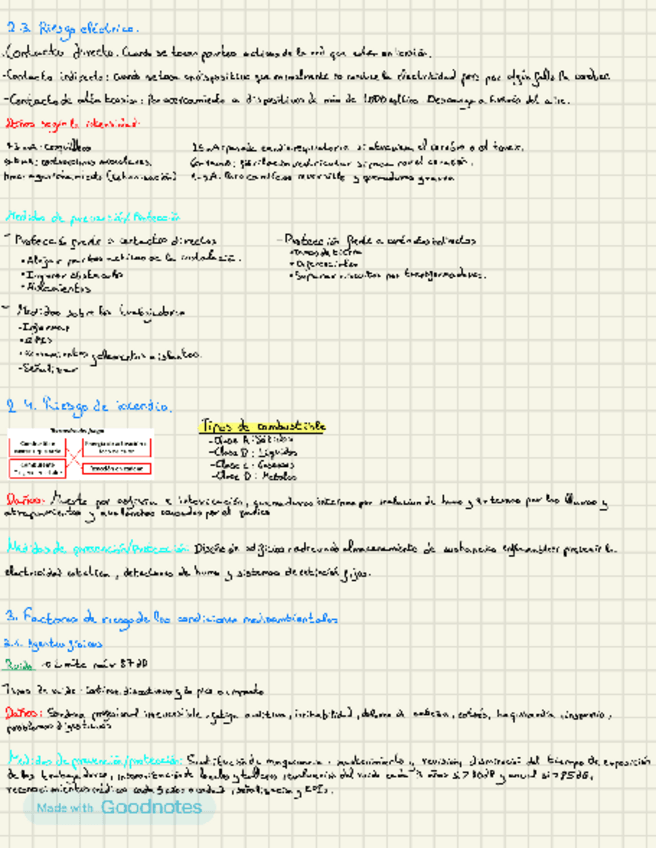 2.3. Riesgo eléctrico.
·Contacto directo. Cuando se tocan partes activas de la red que estan en tensión.
-Contacto indirecto: Cuando se toca un dispositivo que normalmente no conduce la electricidad pero por algún fallo la conduce.
-Contacto de alta tensión: Por acercamiento a dispositivos de más de 1.000 voltios. Descarga a través del aire.
Daños según la intensidad:
1-3 mA: cosquilleo
contracciones musculares.
si atraviesa el cerebro o el torax.
fibrilación ventricular si pasa por el corazón.
Paro cardíaco reversible y quemaduras graves
Medidas de prevención/Protección
- Protección frente a contactos directos
• Alejar partes activas de la instalación.
• Interponer obstáculos
• Aislamientos
- Protección frente a contactos indirectos
• Tomas de tierra
• Diferenciales
• Separar circuitos por transformadores.
- Medidas sobre los trabajadores
- Informar
- EPIS
- Herramientas y elementos aislantes.
- Señalizar
2.4. Riesgo de incendio.
Combustible
Combustible
Reacción en cadena
Tipos de combustible
-Clase A: Sólidos
-Clase B: Líquidos
-Clase C: Gaseosos
-Clase D: Metales
Daños: Muerte por asfixia e intoxicación, quemaduras internas por inhalación de humo y externas por las llamas y
atrapamientos y avalanchas causadas por el pánico
Medidas de prevención/Protección: Diseño de edificios adecuado, almacenamiento de sustancias inflamables, prevenir la
electricidad estática, detectores de humo y sistemas de extinción fijos.
3. Factores de riesgo de las condiciones medioambientales
Agentes físicos
Ruido → Límite máx 87 dB
Tipos de ruido: continuo, discontinuo y de pico o impacto
Daños: Sordera profesional irreversible, fatiga auditiva, irritabilidad, dolores de cabeza, estrés, taquicardia, insomnio,
problemas digestivos
Medidas de prevención/protección: Sustitución de maquinaria, mantenimiento y revisión, disminución del tiempo de exposición
de los trabajadores, insonorización de locales y talleres, evaluación del ruido cada 3 años si >80dB y anual si >85dB,
reconocimientos médicos señalización y EPIs.
Made with Goodnotes